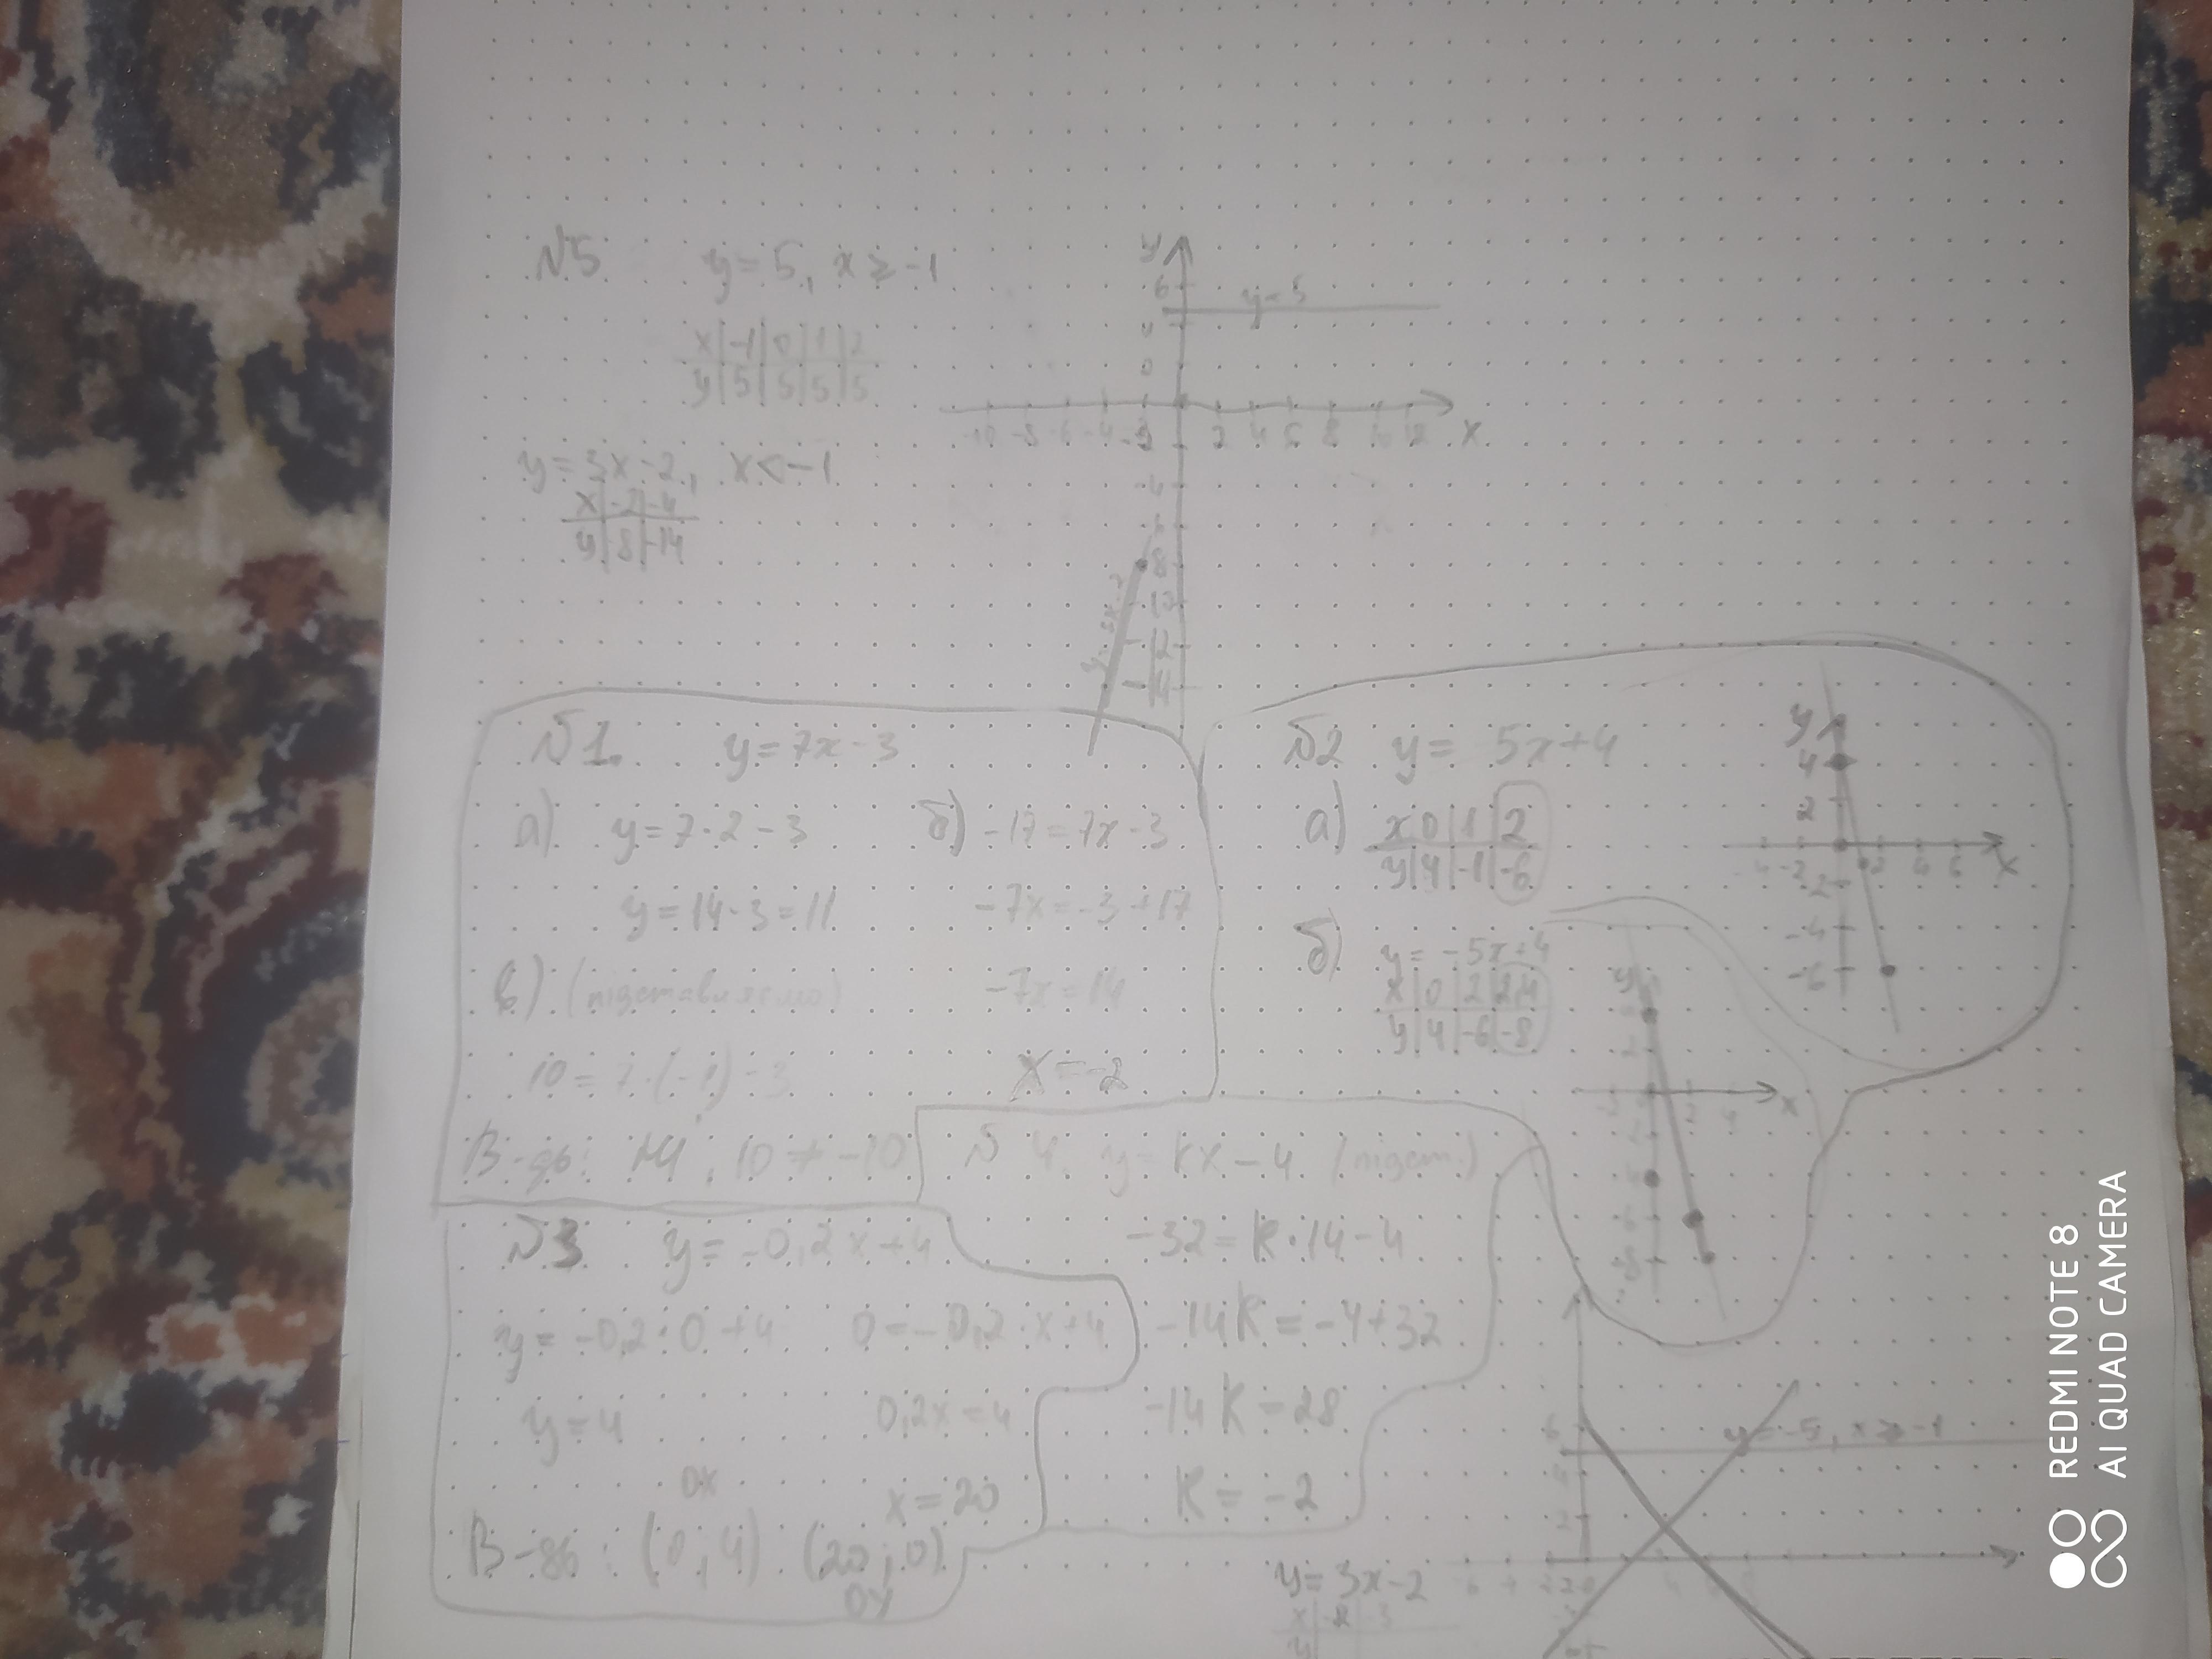 №5 y = 5, x ≥ -1
x | -1 | 0 | 1 | 2
y | 5 | 5 | 5 | 5
y = 3x - 2, x < -1
x | -2 | -4
y | 8 | -14
y
6
y = 5
-10 -8 -6 -4 -2 2 4 6 8 10 12 x
№1. y = 7x - 3
а) y = 7·2 - 3
y = 14 - 3 = 11
б) -17 = 7x - 3
-7x = -3 + 17
-7x = 14
x = -2
в) (підставляємо)
10 = 7·(-1) - 3
В-дь: Ні, 10 ≠ -10
№2 y = 5x + 4
а) x 0 | 1 | 2
y | 4 | -1 | -6
y
4
2
-4 -2 2 4 6 x
-4
-6
б) y = -5x + 4
x | 0 | 2 | 2,4
y | 4 | -6 | -8
y
x
№3 y = -0,2x + 4
y = -0,2·0 + 4
y = 4
0 = -0,2·x + 4
0,2x = 4
x = 20
ОХ
В-дь: (0; 4) (20; 0)
ОУ
№4 y = kx - 4 (підст.)
-32 = k·14 - 4
-14k = -4 + 32
-14k = 28
k = -2
y = -5, x ≥ -1
6
4
2
y = 3x - 2
x | -2 | -3
y
REDMI NOTE 8
AI QUAD CAMERA